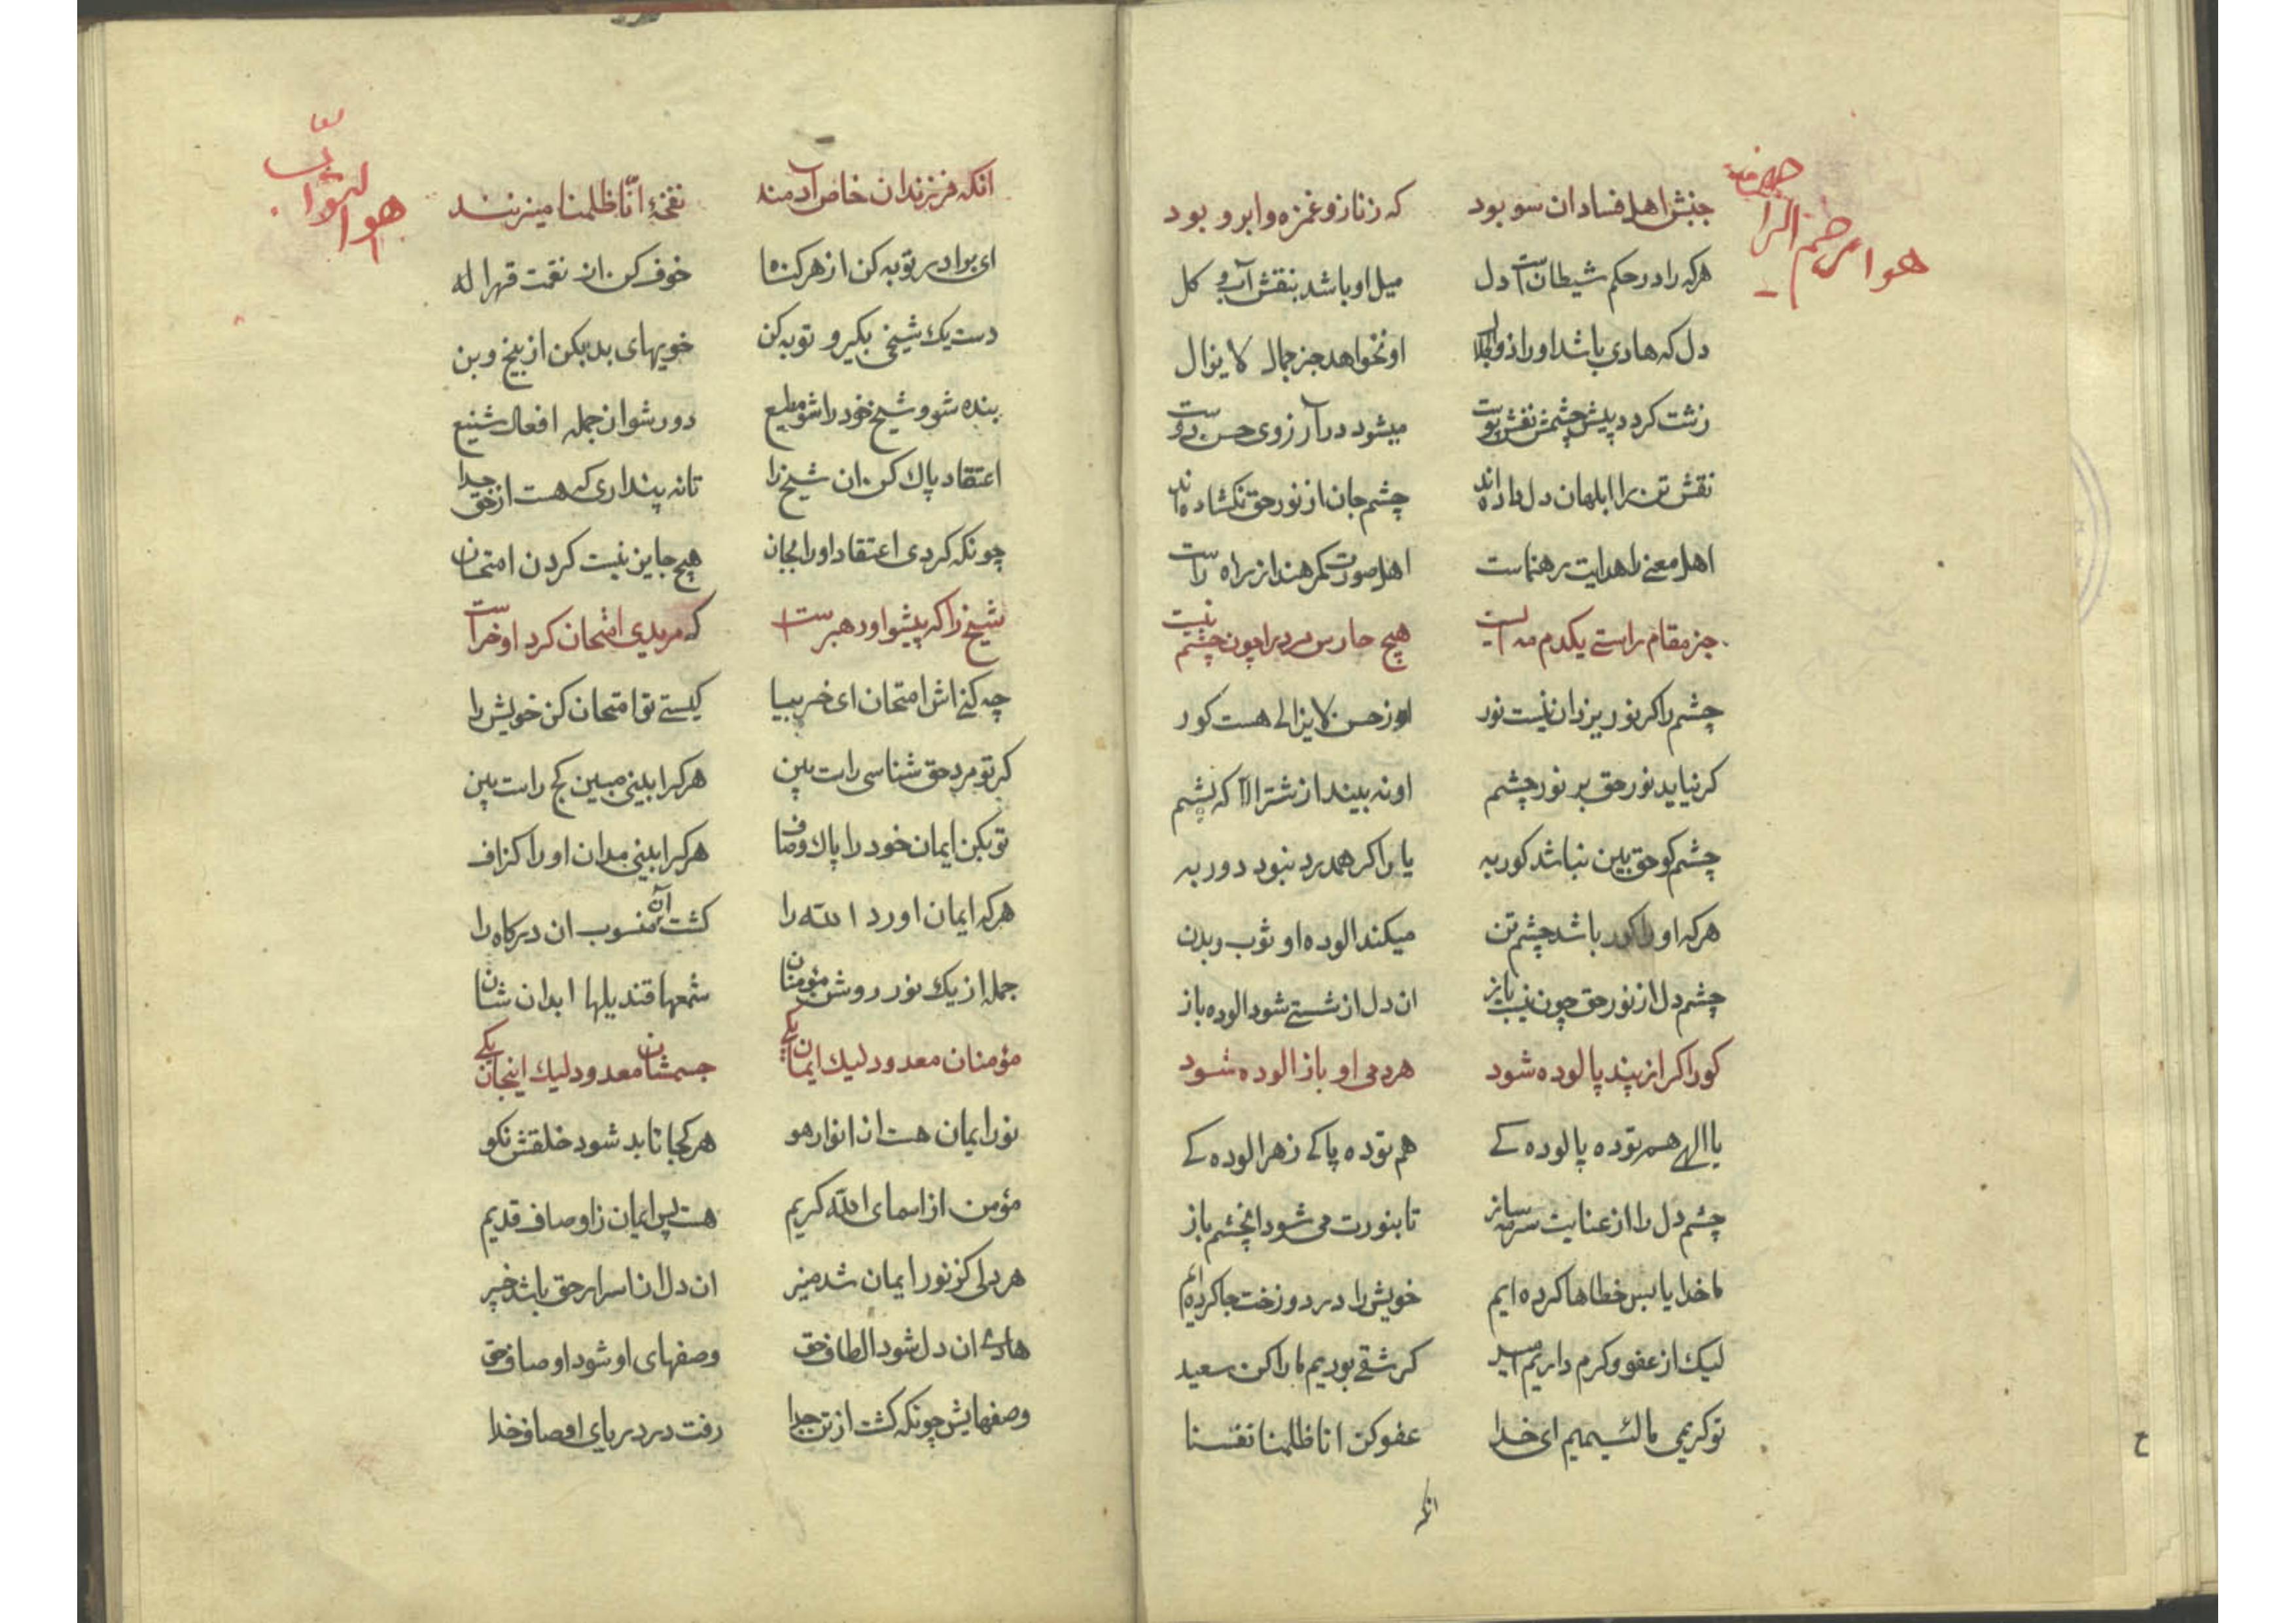 هو ارحم الراحمین
جنبش اهل فساد ان سو بود که زناز و غمزه و ابرو بود
هرکه را در حکم شیطانست دل میل او باشد بنقش آب و کل
دل که هادی باشد او را ذوالجلال او نخواهد جز جمال لا یزال
زشت کردد پیش چشمش نقش پوست میشود در آرزوی حسن دوست
نقش تن را ابلهان دل داده اند چشم جان از نور حق نکشاده اند
اهل معنی را هدایت رهنماست اهل صورت کمرهند از راه راست
جز مقام راستی یکدم مه ایست هیچ حارس مرد را چون چشم نیست
چشم را کر نور یزدان نیست نور او ز حسن لا یزالی هست کور
کر نیاید نور حق بر نور چشم او نه بیند از شتر الا که پشم
چشم کو حق بین نباشد کور به یار اکر همدرد نبود دور به
هرکه او را کور باشد چشم تن میکند الوده او ثوب و بدن
چشم دل از نور حق چون نیست باز ان دل از شستی شود الوده باز
کور اکر از پند پالوده شود هر دمی او باز الوده شود
یا الهی هم تو ده پالوده کے هم تو ده پاکے ز هر الوده کے
چشم دل را از عنایت سرمه ساز تا بنورت می شود انچشم باز
ما خدایا بس خطاها کرده ایم خویش را در دوزخت جا کرده ایم
لیک از عفو و کرم داریم امید کر شقی بودیم ما را کن سعید
تو کریمی ما لئیمیم ای خدا عفو کن انا ظلمنا نفسنا
انکه
هو التواب
انکه فرزندان خاص آدمند نفخهٔ انّا ظلمنا میزنند
ای برادر توبه کن از هر کناه خوف کن از نقمت قهر اله
دست یک شیخی بکیر و توبه کن خویهای بد بکن از بیخ و بن
بنده شو و شیخ خود را شو مطیع دور شو از جمله افعال شنیع
اعتقاد پاک کن ان شیخ را تا نه پنداری که هست از حق جدا
چونکه کردی اعتقاد او را بجان هیچ جایز نیست کردن امتحان
شیخ را که پیشوا و رهبرست کر مریدی امتحان کرد او خراست
چه کنی اش امتحان ای خر بیا کیستی تو امتحان کن خویش را
کر تو مرد حق شناسی راست بین هر کرا بینی مبین کج راست بین
تو بکن ایمان خود را پاک و صاف هر کرا بینی مدان او را کزاف
هرکه ایمان اورد الله را کشت منسوب ان درکاه را
جمله از یک نور روشن مؤمنان شمعها قندیلها ابدان شان
مؤمنان معدود لیک ایمان یکے جسمشان معدود لیک اینجان یکے
نور ایمان هست از انوار هو هر کجا تابد شود خلقش نکو
مؤمن از اسمای الله کریم هست پس ایمان ز اوصاف قدیم
هر دلی کز نور ایمان شد منیر ان دل از اسرار حق باشد خبیر
هادئ ان دل شود الطاف حق وصفهای او شود اوصاف حق
وصفهایش چونکه کشت از تن جدا رفت در دریای اوصاف خدا